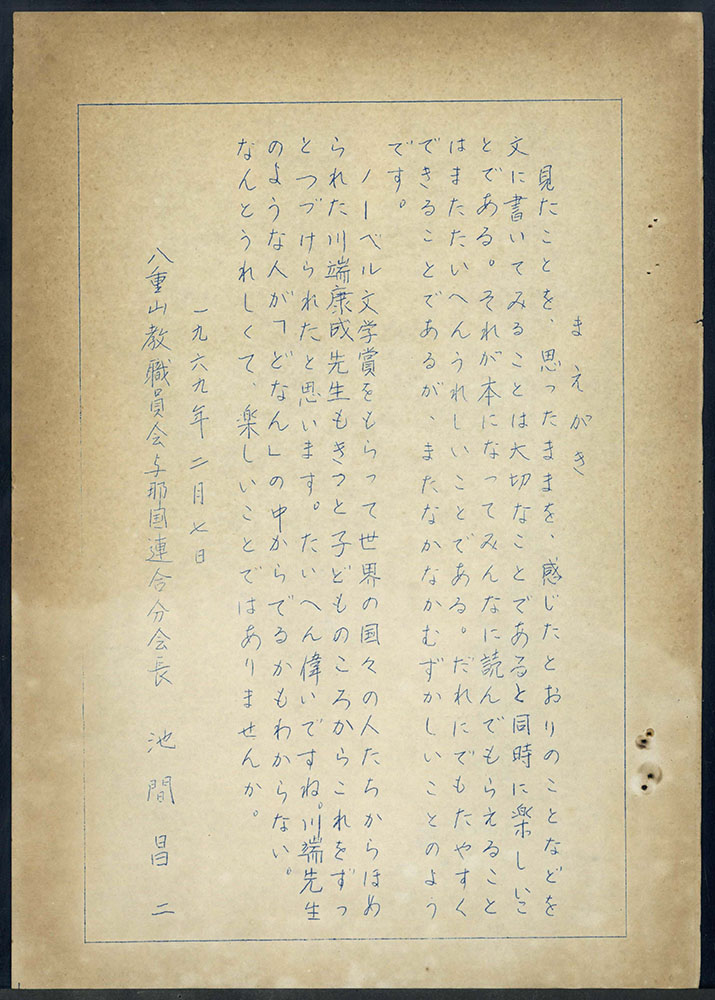 まえがき
見たことを、思ったままを、感じたとおりのことなどを
文に書いてみることは大切なことであると同時に楽しいこ
とである。それが本になってみんなに読んでもらえること
はまたたいへんうれしいことである。だれにでもたやすく
できることであるが、またなかなかむずかしいことのよう
です。
ノーベル文学賞をもらって世界の国々の人たちからほめ
られた川端康成先生もきっと子どものころからこれをずっ
とつづけられたと思います。たいへん偉いですね。川端先生
のような人が「どなん」の中からでるかもわからない。
なんとうれしくて、楽しいことではありませんか。
一九六九年二月七日
八重山教職員会与那国連合分会長　池間昌二